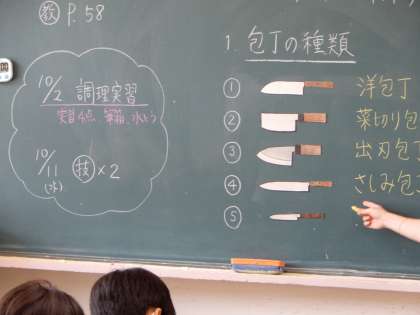 教 P.58
10/2 調理実習
実習4点、筆箱、水とう
10/11
(水)
技×2
1. 包丁の種類
① 洋包丁
② 菜切り包
③ 出刃包丁
④ さしみ包丁
⑤